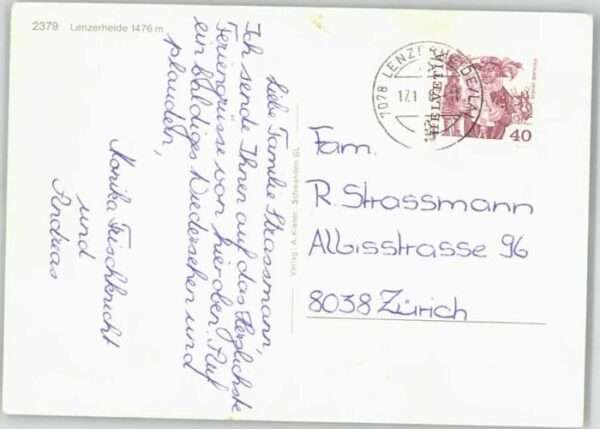 2379 Lenzerheide 1476 m
Liebe Familie Strassmann,
Ich sende Ihnen auf das Herzlichste
Feriengrüsse von hier oben. Auf
ein baldiges Wiedersehen und
plaudern,
Monika
und
Andreas
7078 LENZERHEIDE/LAI
17.1
HELVETIA
40
Fam.
R. Strassmann
Albisstrasse 96
8038 Zürich